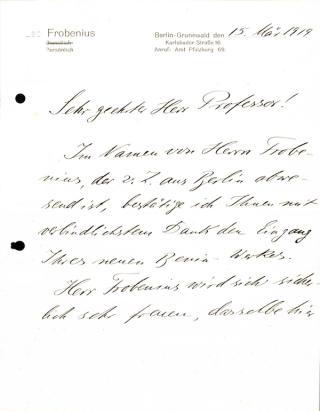 Leo Frobenius
Persönlich
Berlin-Grunewald den 15. Mai 1919
Karlsbader-Straße 16
Anruf: Amt Pfalzburg 69.
Sehr geehrter Herr Professor!
Im Namen von Herrn Frobe-
nius, der z. Z. aus Berlin abwe-
send ist, bestätige ich Ihnen mit
verbindlichstem Dank den Eingang
Ihres neuen Benin-Werkes.
Herr Frobenius wird sich sicher-
lich sehr freuen, dasselbe hier